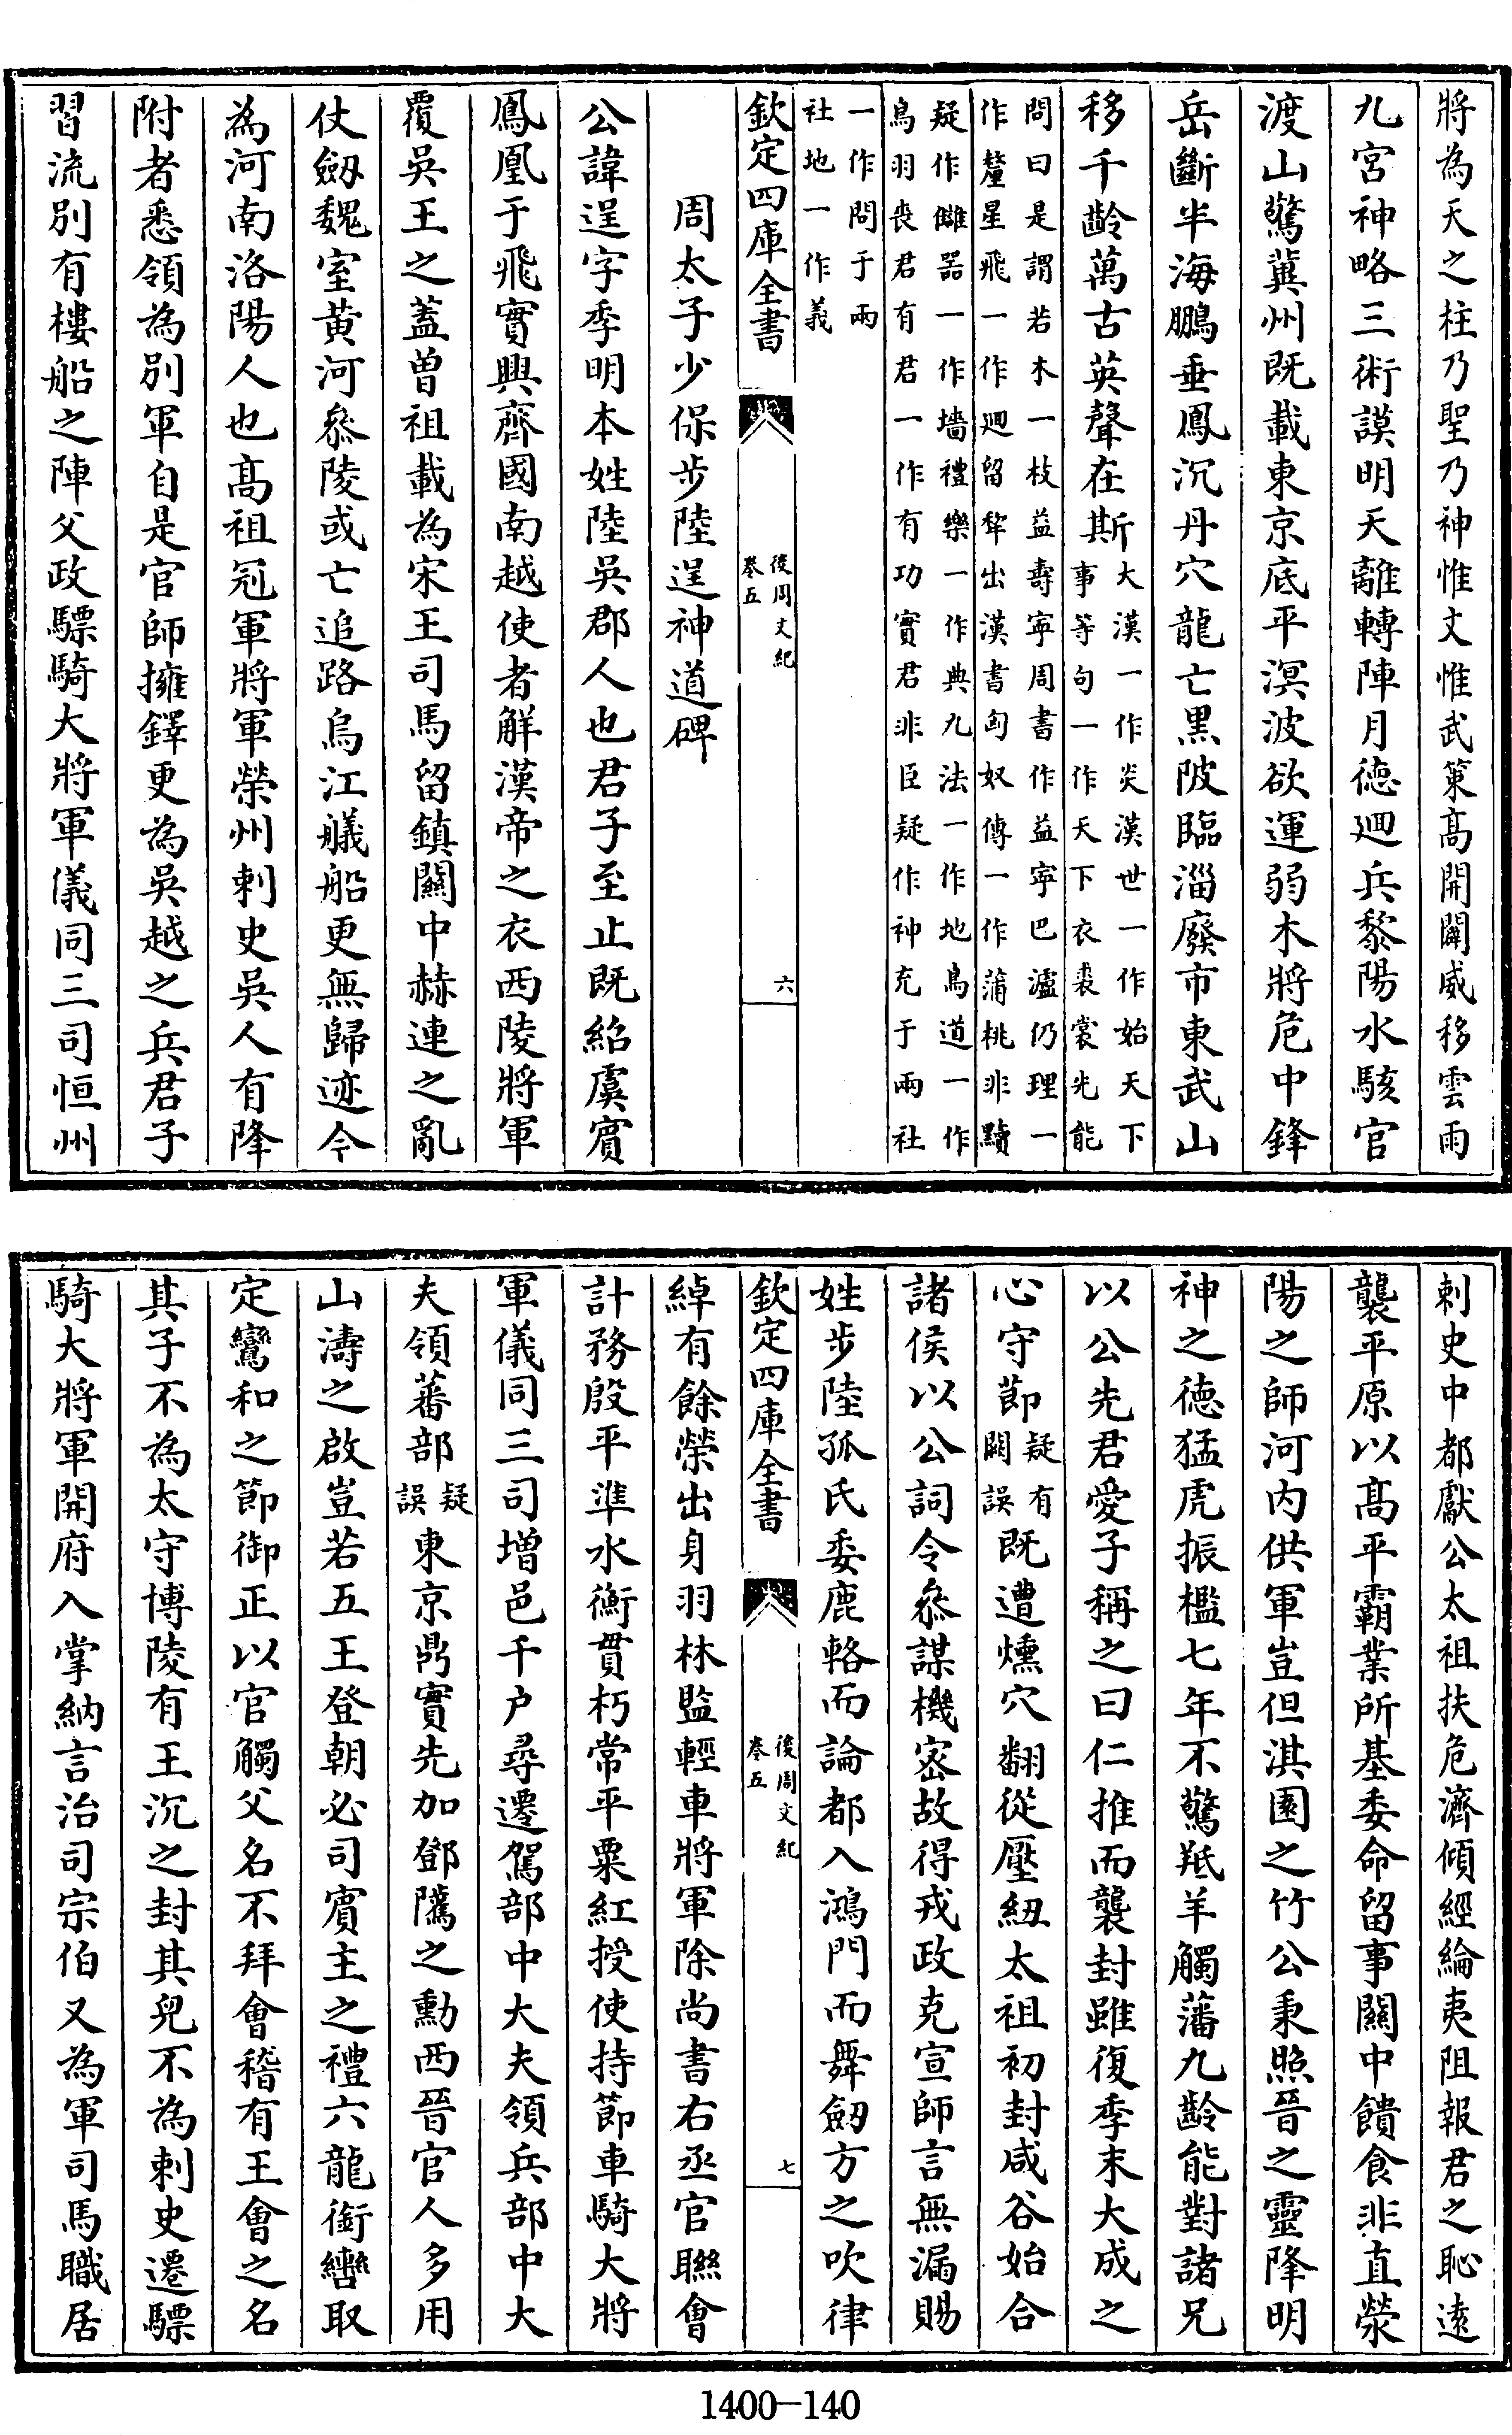 將為天之柱乃聖乃神惟文惟武策髙開闢威移雲雨
九宮神略三術謨明天離轉陣月德廻兵黎陽水駭官
渡山驚冀州既載東京底平溟波欲運弱木將危中鋒
岳斷半海鵬垂鳳沉丹穴龍亡黒陂臨淄廢市東武山
移千齡萬古英聲在斯大漢一作炎漢世一作始天下
事等句一作天下衣裘裳先能
問曰是謂若木一枝益壽寜周書作益寜巴瀘仍理一
作釐星飛一作廻留犂出漢書匈奴傳一作蒲桃非黷
疑作讎器一作墻禮樂一作典九法一作地鳥道一作
鳥羽喪君有君一作有功實君非臣疑作神充于兩社
一作問于兩
社地一作義
欽定四庫全書
後周文紀
卷五
六
周太子少保步陸逞神道碑
公諱逞字季明本姓陸吳郡人也君子至止既紹虞賓
鳳凰于飛實興齊國南越使者觧漢帝之衣西陵將軍
覆吳王之蓋曽祖載為宋王司馬留鎮闗中赫連之亂
仗劔魏室黄河叅陵或亡追路烏江艤船更無歸迹今
為河南洛陽人也髙祖冠軍將軍榮州刺史吳人有降
附者悉領為别軍自是官師擁鐸更為吳越之兵君子
習流别有樓船之陣父政驃騎大將軍儀同三司恒州
刺史中都獻公太祖扶危濟傾經綸夷阻報君之恥逺
襲平原以髙平霸業所基委命留事闗中饋食非直滎
陽之師河内供軍豈但淇園之竹公秉照晉之靈降明
神之德猛虎振檻七年不驚羝羊觸藩九齡能對諸兄
以公先君愛子稱之曰仁推而襲封雖復季末大成之
心守節疑有
闕誤既遭燻穴翻從壓紐太祖初封咸谷始合
諸侯以公詞令叅謀機宻故得戎政克宣師言無漏賜
姓步陸孤氏委鹿輅而論都入鴻門而舞劔方之吹律
欽定四庫全書
後周文紀
卷五
七
綽有餘榮出身羽林監輕車將軍除尚書右丞官聯會
計務殷平準水衡貫朽常平粟紅授使持節車騎大將
軍儀同三司增邑千户尋遷駕部中大夫領兵部中大
夫領蕃部疑
誤東京鼎實先加鄧隲之勳西晉官人多用
山濤之啟豈若五王登朝必司賓主之禮六龍銜轡取
定鸞和之節御正以官觸父名不拜會稽有王會之名
其子不為太守博陵有王沉之封其兒不為刺史遷驃
騎大將軍開府入掌納言治司宗伯又為軍司馬職居
1400-140